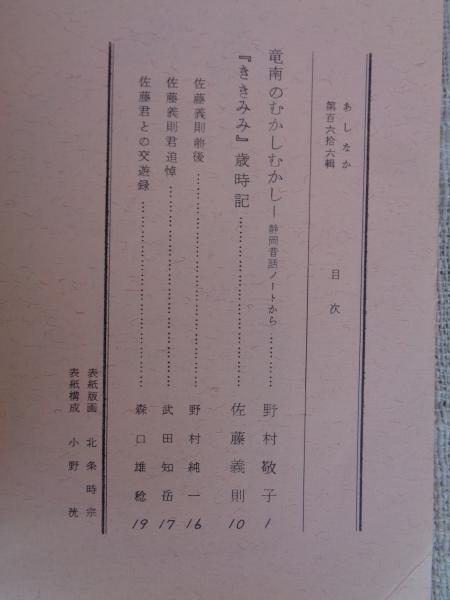 あしなか
第百六拾六輯
目次
竜南のむかしむかし―静岡昔話ノートから…………野村敬子 1
『ききみみ』歳時記…………佐藤義則 10
佐藤義則前後…………野村純一 16
佐藤義則君追悼…………武田知岳 17
佐藤君との交遊録…………森口雄稔 19
表紙版画 北条時宗
表紙構成 小野洸